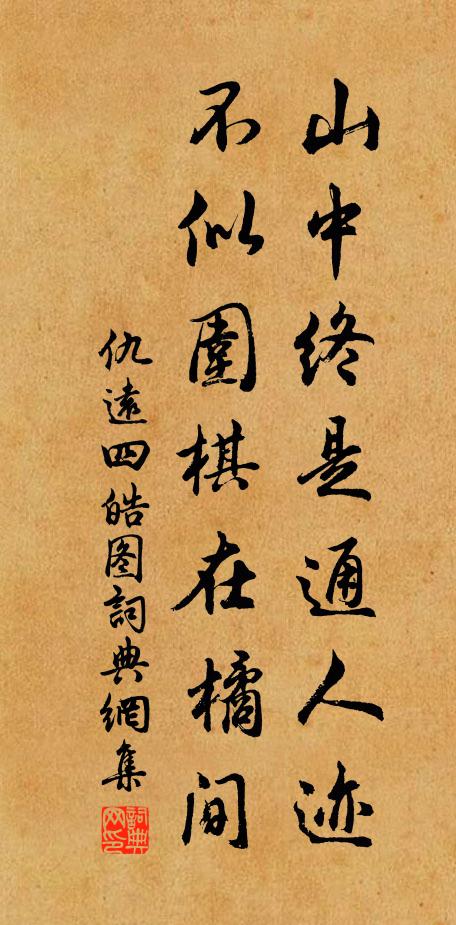 山中终是通人迹
不似围棋在橘间
仇遠四皓图詞典網集
詞典网印